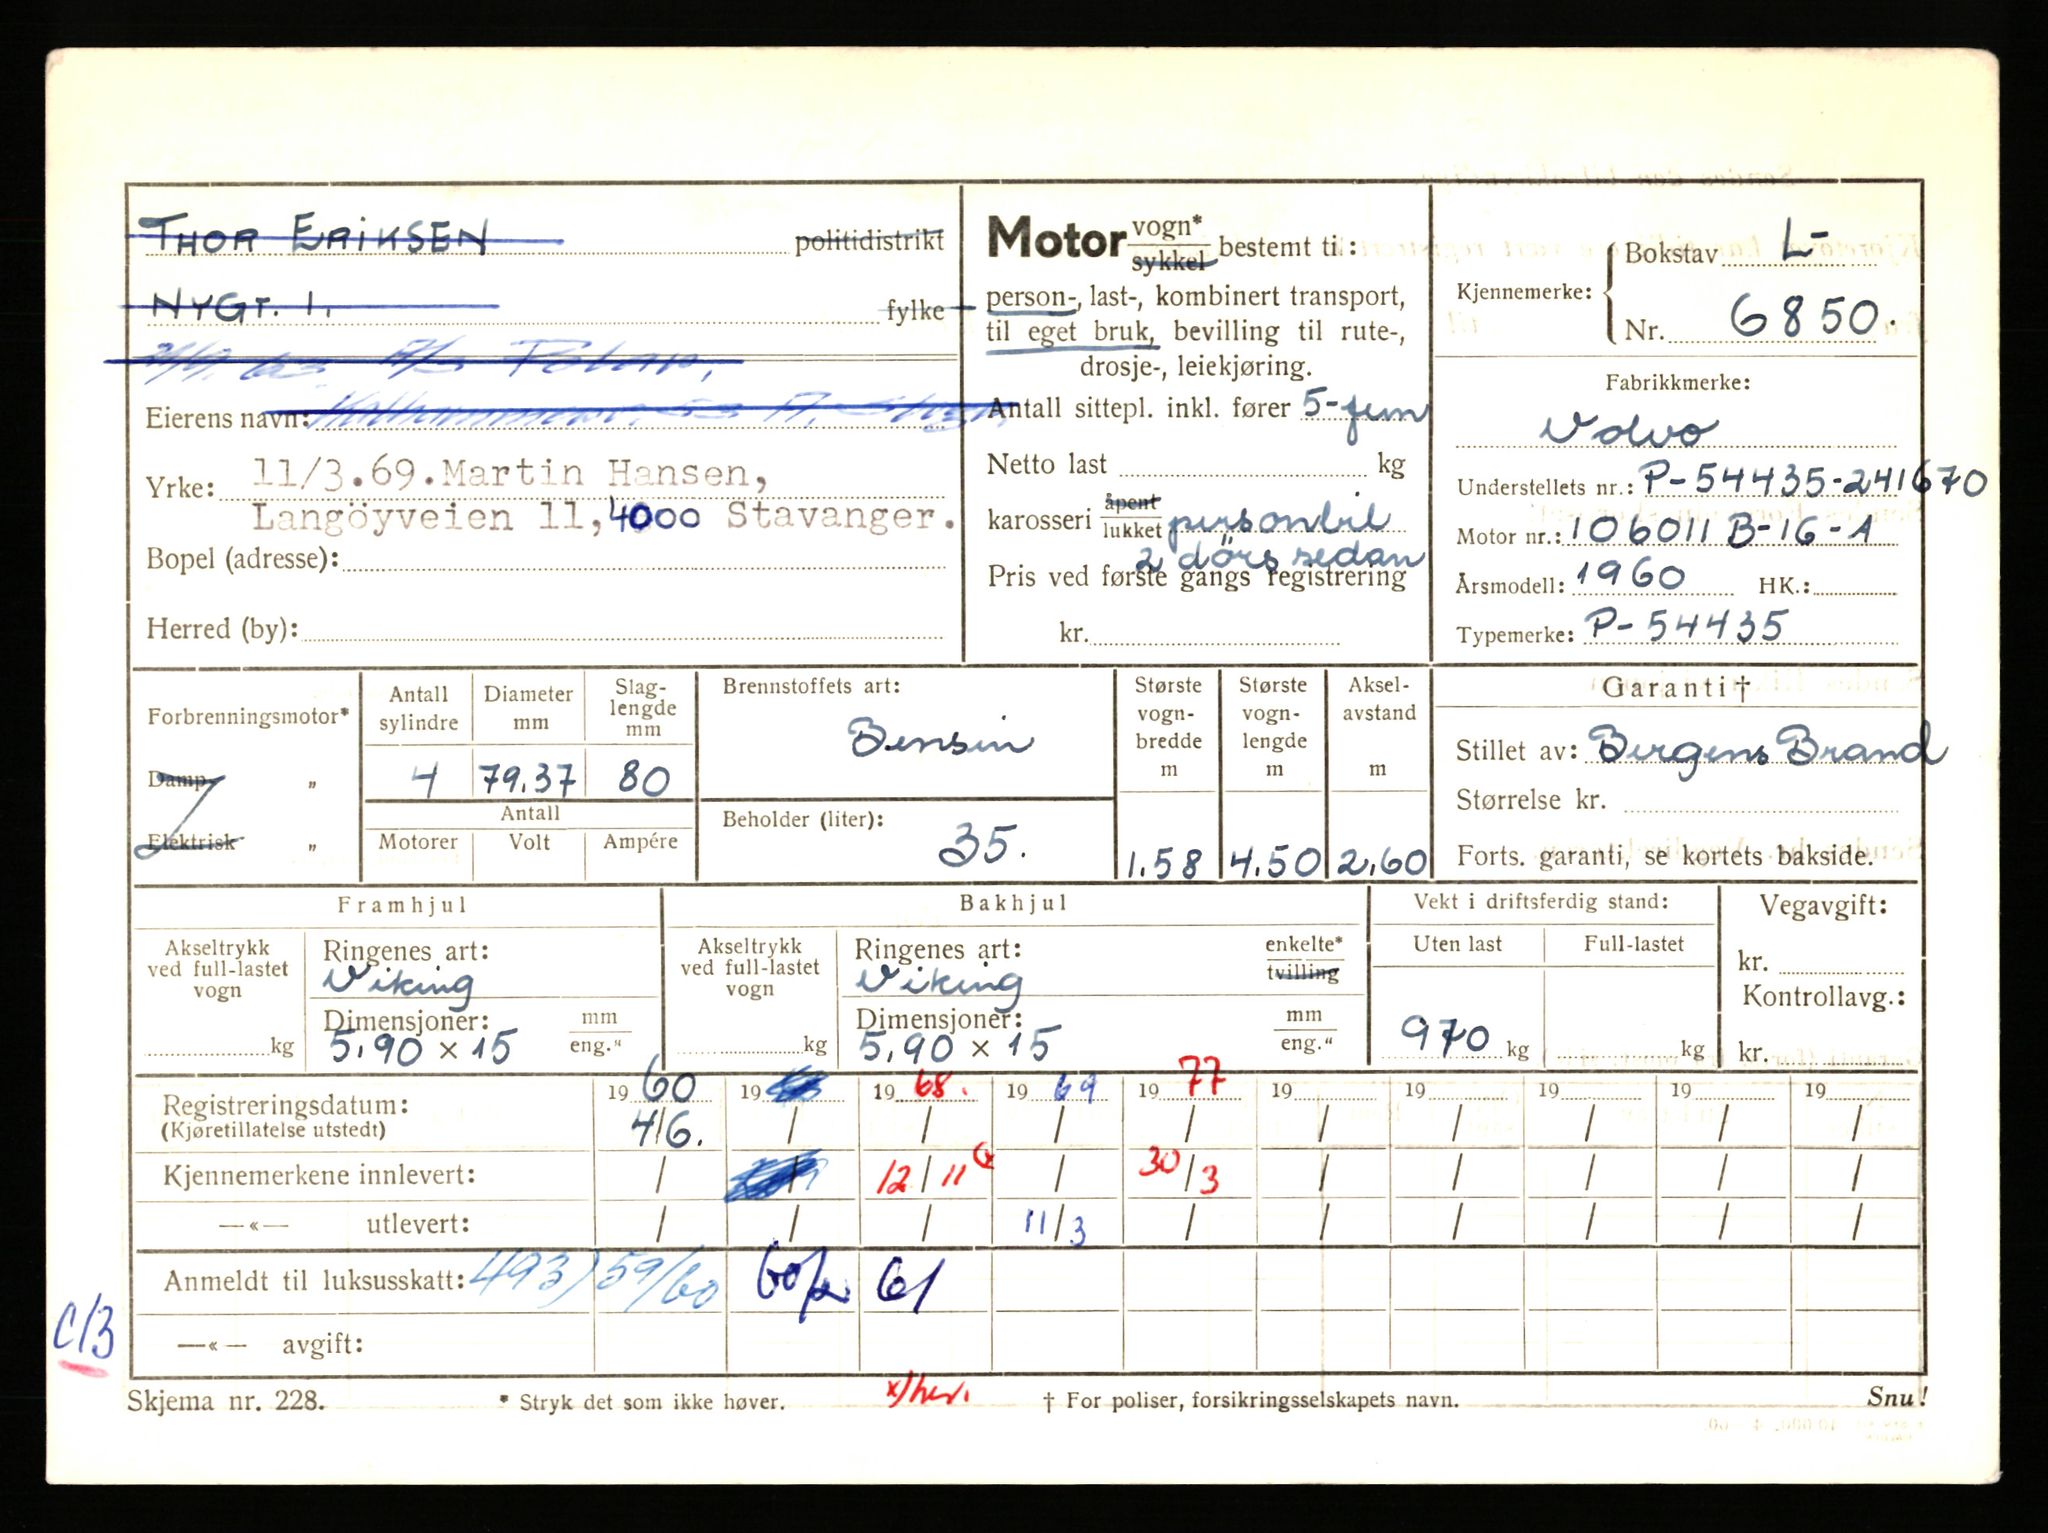 THOR ERIKSEN politidistrikt
NYGT. 1. fylke
Eierens navn:
Yrke: 11/3.69. Martin Hansen,
Langöyveien 11, 4000 Stavanger.
Bopel (adresse):
Herred (by):
Motor vogn* sykkel bestemt til:
person-, last-, kombinert transport,
til eget bruk, bevilling til rute-,
drosje-, leiekjøring.
Antall sittepl. inkl. fører 5-fem
Netto last kg
karosseri åpent lukket personbil
2 dörs sedan
Pris ved første gangs registrering
kr.
Kjennemerke: Bokstav L-
Nr. 6850.
Fabrikkmerke:
Volvo
Understellets nr.: P-54435-241670
Motor nr.: 106011 B-16-A
Årsmodell: 1960 HK.:
Typemerke: P-54435
Forbrenningsmotor*
Damp „
Elektrisk „
Antall sylindre
Diameter mm
Slag-lengde mm
4 79.37 80
Antall
Motorer Volt Ampére
Brennstoffets art:
Bensin
Beholder (liter):
35.
Største vogn-bredde m
1.58
Største vogn-lengde m
4.50
Aksel-avstand m
2.60
Garanti †
Stillet av: Bergens Brand
Størrelse kr.
Forts. garanti, se kortets bakside.
Framhjul
Akseltrykk ved full-lastet vogn
kg
Ringenes art:
Viking
Dimensjoner: mm eng."
5.90 × 15
Bakhjul
Akseltrykk ved full-lastet vogn
kg
Ringenes art: enkelte* tvilling
Viking
Dimensjoner: mm eng."
5.90 × 15
Vekt i driftsferdig stand:
Uten last Full-lastet
970 kg kg
Vegavgift:
kr.
Kontrollavg.:
kr.
1960 19 1968. 1969 1977 19 19 19 19 19
Registreringsdatum: 4/6. / / / / / / / / /
(Kjøretillatelse utstedt)
Kjennemerkene innlevert: / / 12/11 x / 30/3 / / / / /
—«— utlevert: / / / 11/3 / / / / / /
Anmeldt til luksusskatt: 493) 59/60 61
—«— avgift:
C/3
Skjema nr. 228.
* Stryk det som ikke høver.
† For poliser, forsikringsselskapets navn.
Snu!